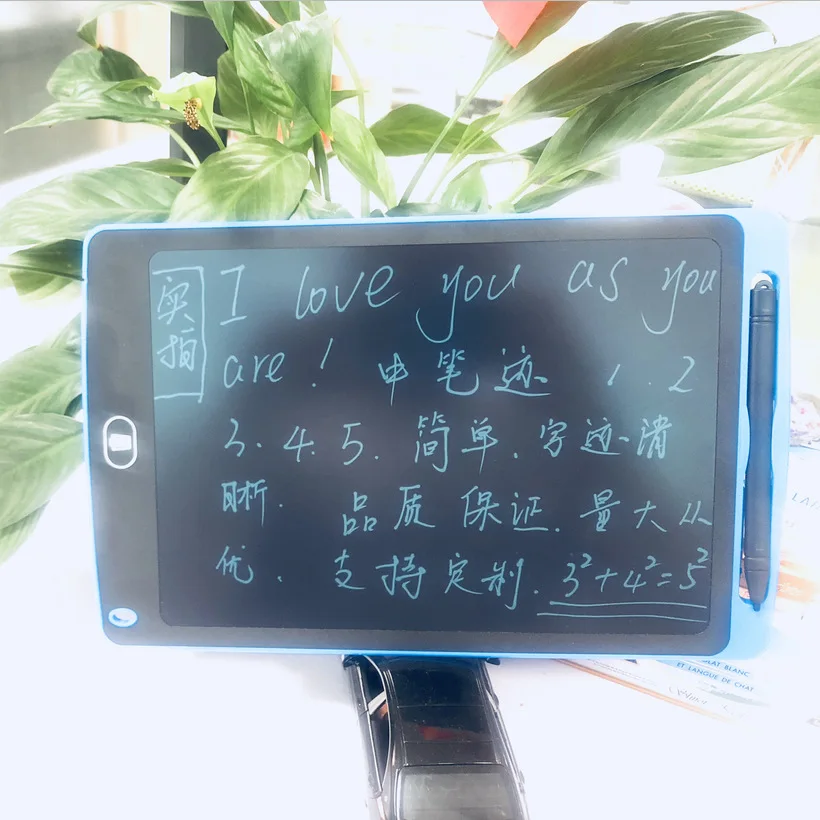 实拍
I love you as you
are! 中笔迹 1. 2
3. 4. 5. 简单. 字迹清
晰. 品质保证. 量大从
优. 支持定制. 3²+4²=5²
AT BLANC
ET LANGUE DE CHAT